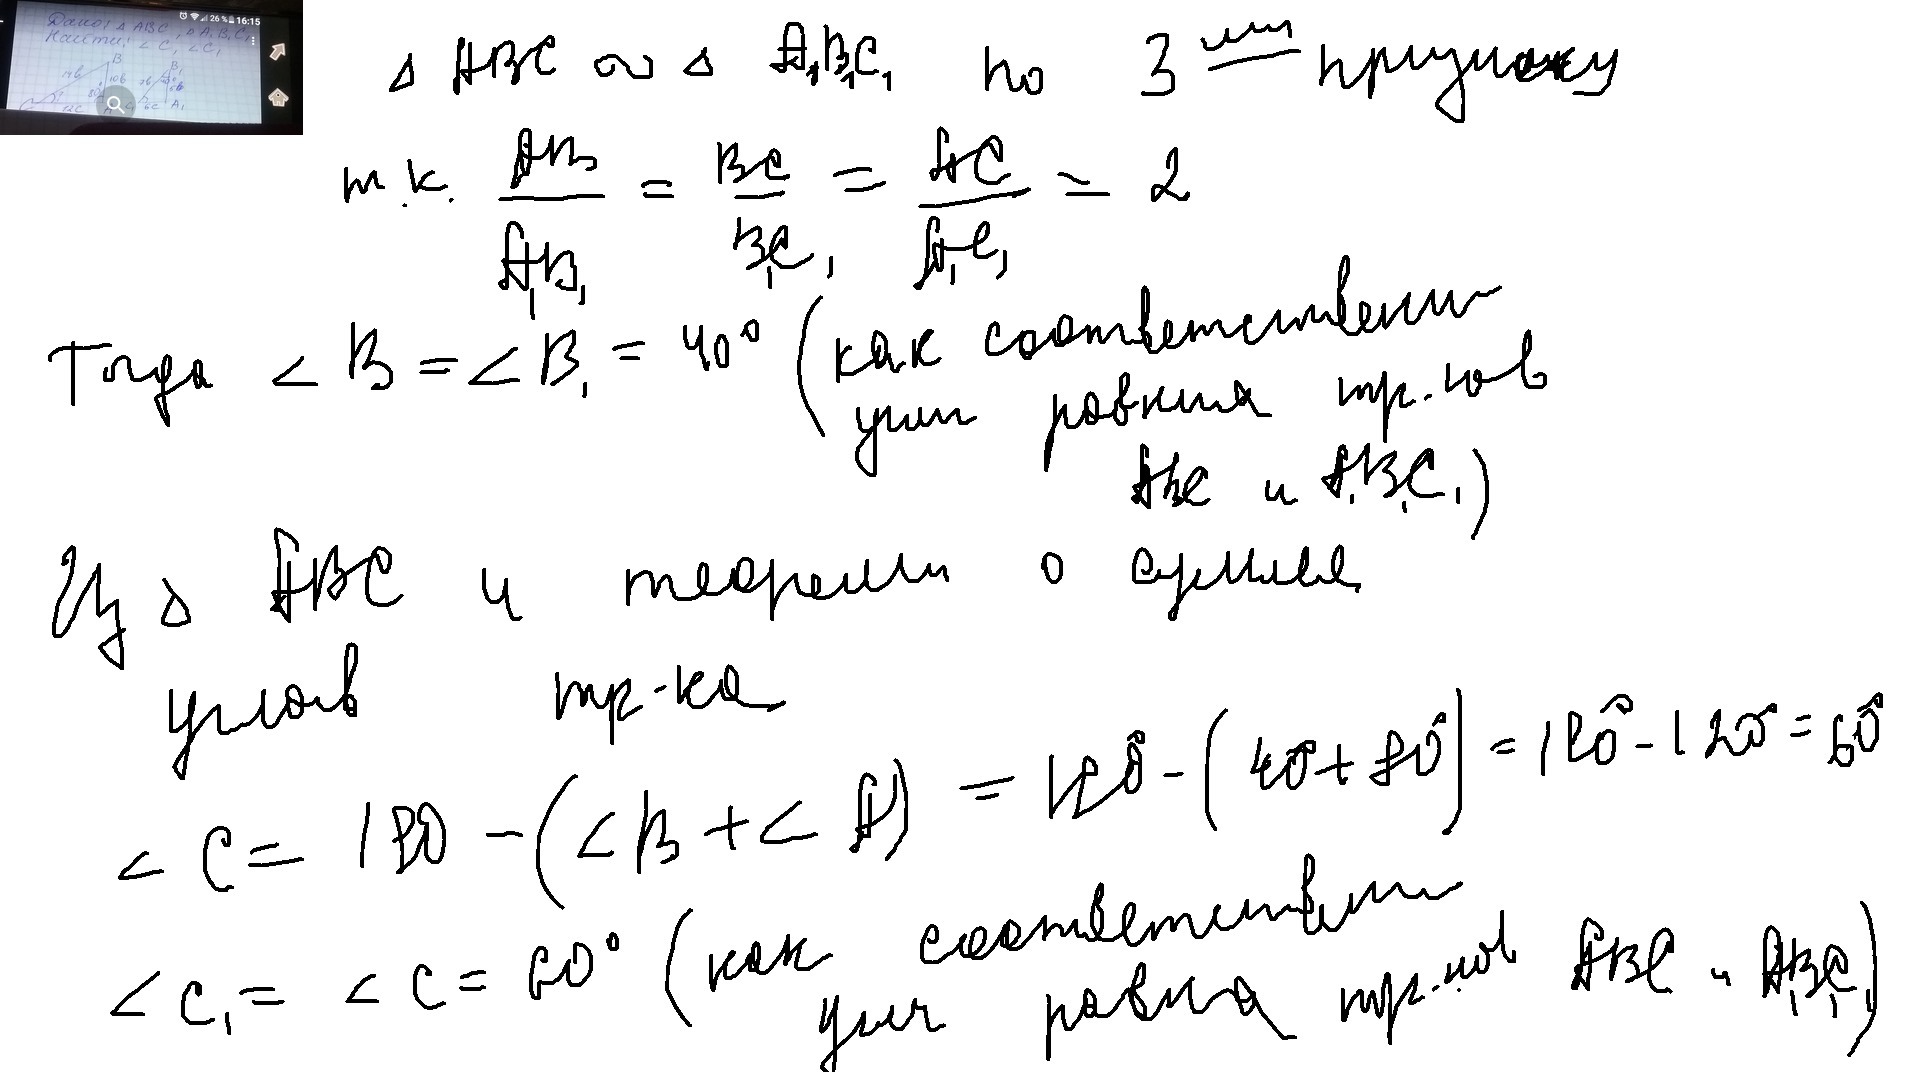 26% 16:15
Дано: △ ABC, △ A₁B₁C₁
Найти: ∠ C, ∠ C₁
△ ABC ∾ △ A₁B₁C₁ по 3 признаку
т.к. AB/A₁B₁ = BC/B₁C₁ = AC/A₁C₁ = 2
Тогда ∠ B = ∠ B₁ = 40° (как соответственн
углы равных тр.-ков
ABC и A₁B₁C₁)
Из △ ABC и теоремы о сумме
углов тр-ка
∠ C = 180 - (∠ B + ∠ A) = 180° - (40° + 80°) = 180° - 120° = 60°
∠ C₁ = ∠ C = 60° (как соответственн
углы равных тр.-ков ABC и A₁B₁C₁)